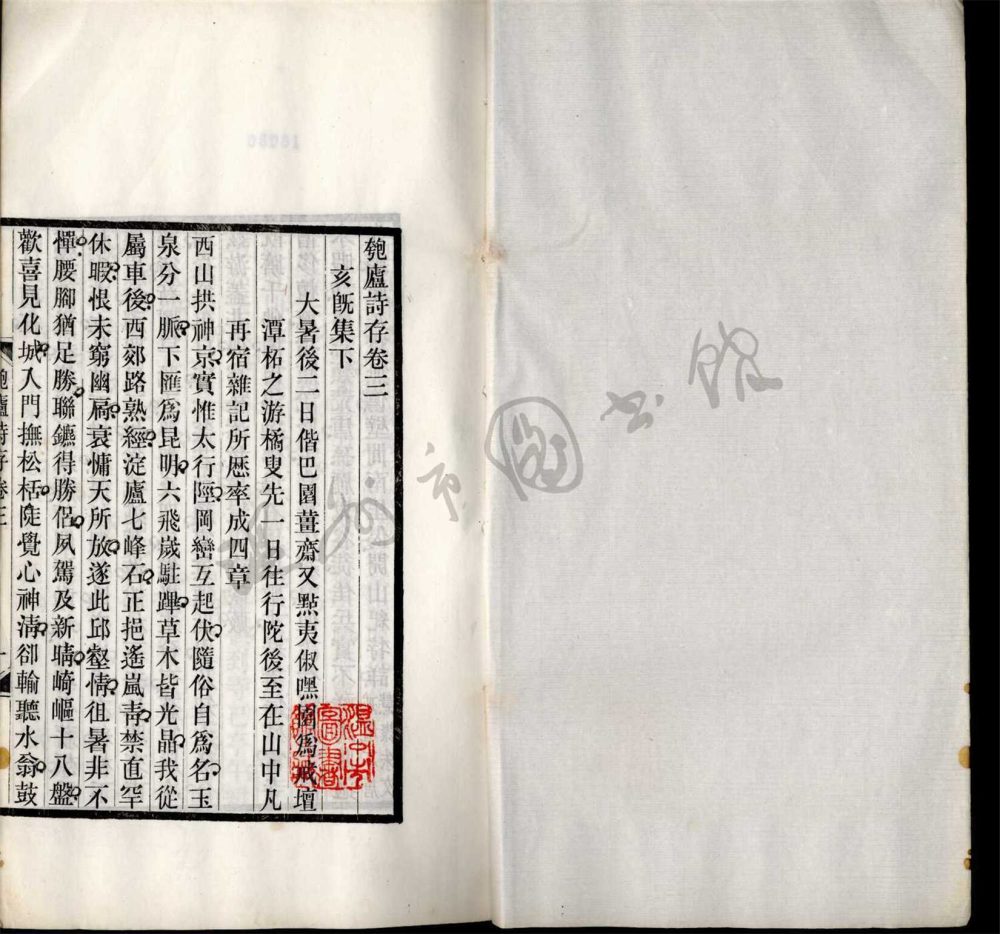 匏廬詩存卷三
亥旣集下
大暑後二日偕巴園薑齋又㸃夷俶嘿園爲戒壇
潭柘之游橘叟先一日往行陀後至在山中凡
再宿雜記所歷率成四章
西山拱神京實惟太行陘岡巒互起伏隨俗自爲名玉
泉分一脈下匯爲昆明六飛歲駐蹕草木皆光晶我從
屬車後西郊路熟經淀廬七峰石正挹遙嵐靑禁直罕
休暇恨未窮幽扃衰慵天所放遂此邱壑情徂暑非不
憚腰腳猶足勝聯鑣得勝侶夙駕及新晴崎嶇十八盤
歡喜見化城入門撫松栝陡覺心神淸卻輸聽水翁鼓
匏廬詩存卷三
一
溫州市圖書館